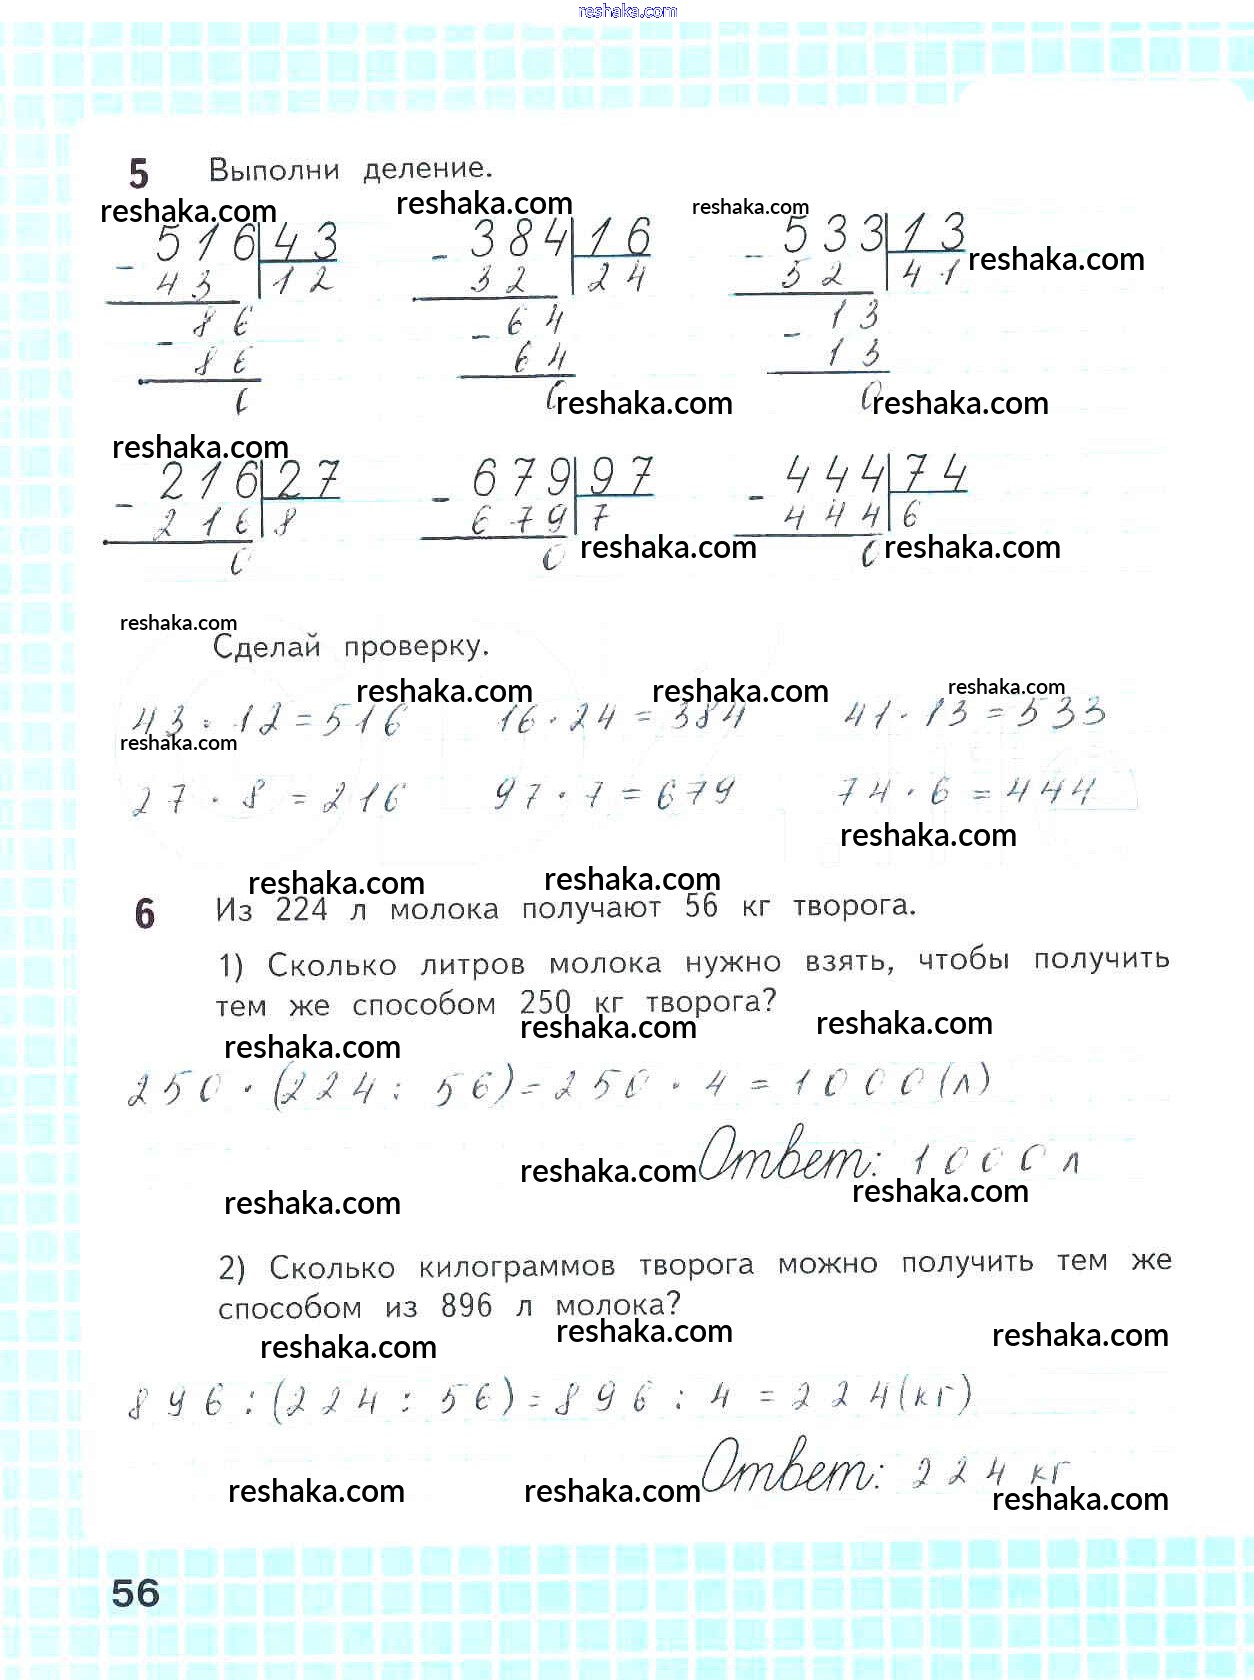 reshaka.com
5 Выполни деление.
reshaka.com reshaka.com reshaka.com
- 516 43 - 384 16 - 533 13
43 12 32 24 52 41 reshaka.com
- 86 - 64 - 13
86 64 13
0 0 reshaka.com 0 reshaka.com
reshaka.com
- 216 27 - 679 97 - 444 74
216 8 679 7 444 6
0 0 reshaka.com 0 reshaka.com
reshaka.com
Сделай проверку.
reshaka.com reshaka.com reshaka.com
43 · 12 = 516 16 · 24 = 384 41 · 13 = 533
reshaka.com
27 · 8 = 216 97 · 7 = 679 74 · 6 = 444
reshaka.com
reshaka.com reshaka.com
6 Из 224 л молока получают 56 кг творога.
1) Сколько литров молока нужно взять, чтобы получить
тем же способом 250 кг творога?
reshaka.com reshaka.com reshaka.com
250 · (224 : 56) = 250 · 4 = 1000 (л)
reshaka.com Ответ: 1000 л
reshaka.com reshaka.com
2) Сколько килограммов творога можно получить тем же
способом из 896 л молока?
reshaka.com reshaka.com reshaka.com
896 : (224 : 56) = 896 : 4 = 224 (кг)
Ответ: 224 кг
reshaka.com reshaka.com reshaka.com
56